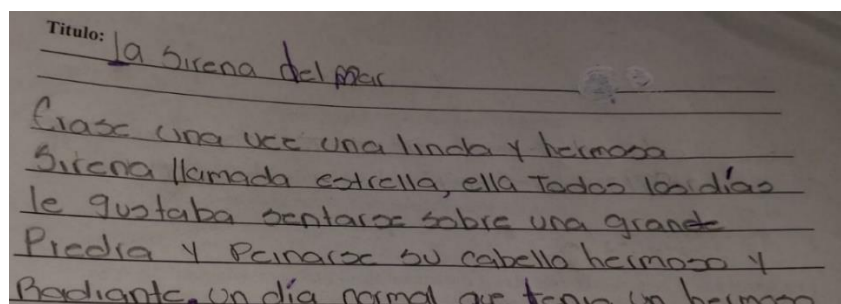 Titulo: la sirena del mar
Erase una vez una linda y hermosa
Sirena llamada estrella, ella Todos los días
le gustaba sentarse sobre una grande
Piedra y Peinarse su cabello hermoso y
Radiante. un día normal que tenia un hermoso